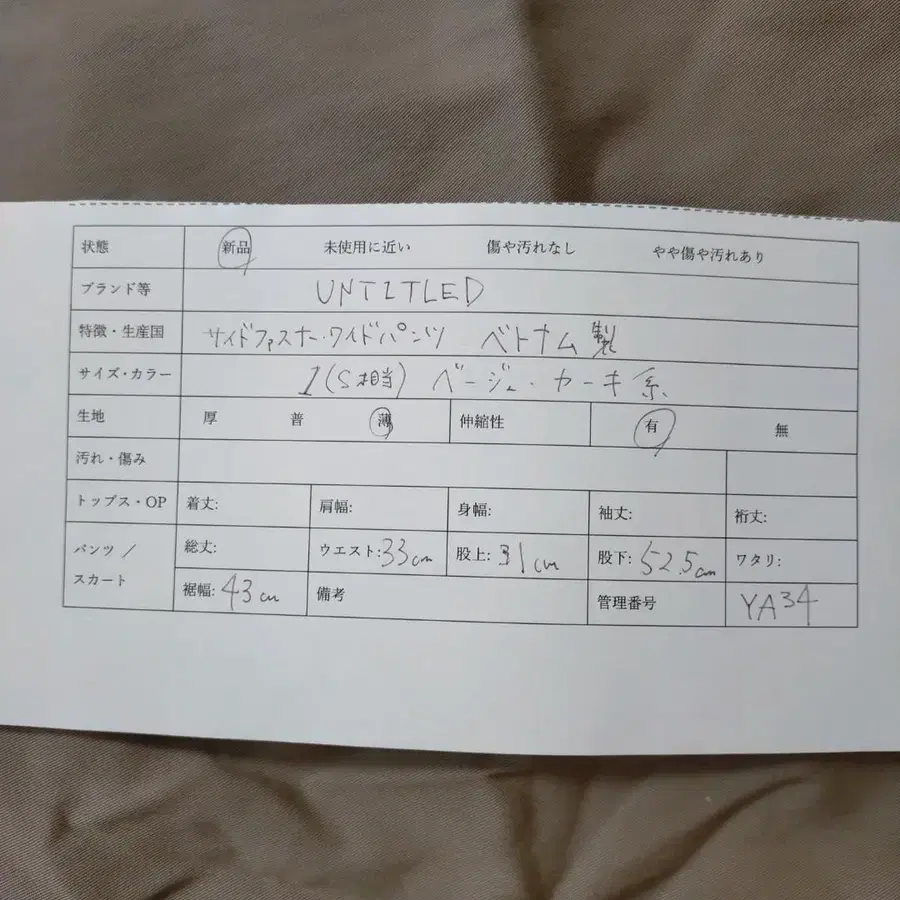 状態 新品 未使用に近い 傷や汚れなし やや傷や汚れあり
ブランド等 UNTITLED
特徴・生産国 サイドファスナー・ワイドパンツ ベトナム製
サイズ・カラー 1(S相当) ベージュ・カーキ系
生地 厚 普 薄 伸縮性 有 無
汚れ・傷み
トップス・OP 着丈: 肩幅: 身幅: 袖丈: 裄丈:
パンツ/スカート 総丈: ウエスト:33cm 股上:31cm 股下:52.5cm ワタリ:
裾幅:43cm 備考 管理番号 YA34